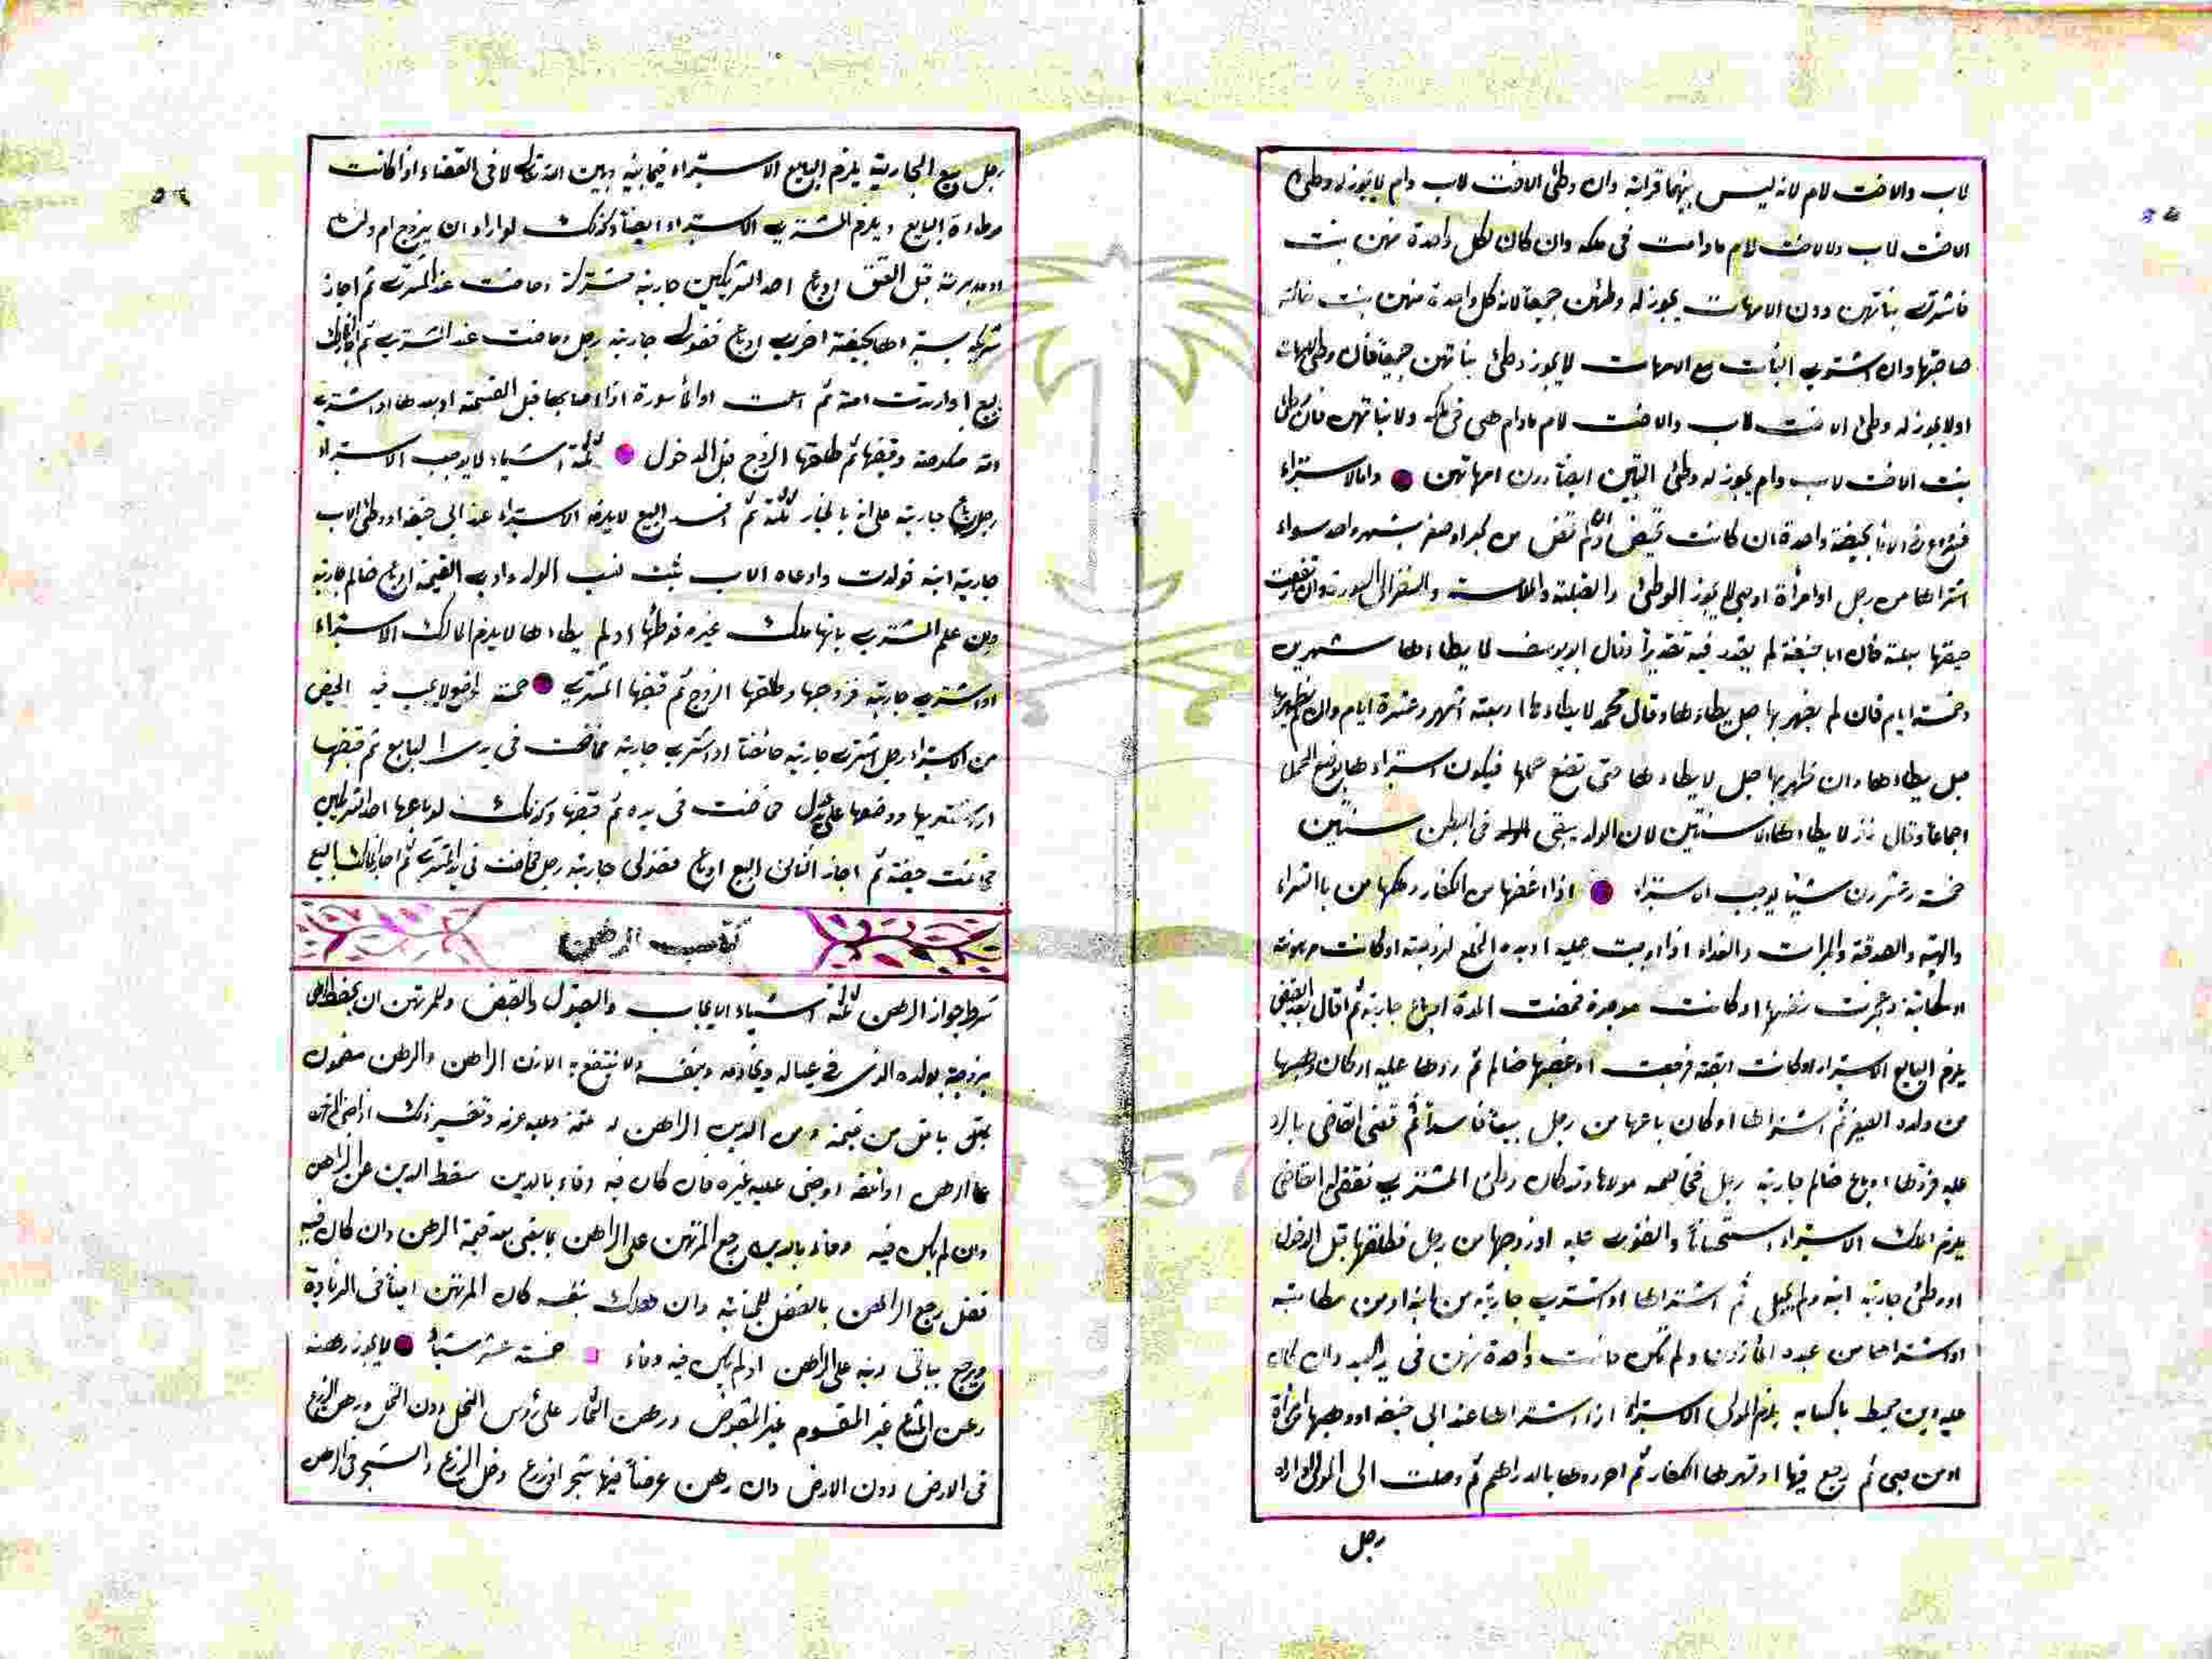 لاب والاخت لام لانه ليس بينهما قرابة وان وطئ الاخت لاب وام لا يجوز له وطئ
الاخت لاب ولا لاخت لام مادامت فى ملكه وان كان لكل واحدة منهن بنت
فاشترى بناتهن دون الامهات يجوز له وطئهن جميعا لانه كل واحدة منهن بنت خالة
صاحبتها وان اشترى البنات مع الامهات لا يجوز وطئ بناتهن جميعا فان وطى الامهات
اولا يجوز له وطئ الاخت لاب والاخت لام مادام هى فى ملكه ولا بناتهن فان وطئ
بنت الاخت لاب وام يجوز له وطئ البنتين ايضا دون امهاتهن واما الاستبراء
بحيضة واحدة ان كانت تحيض وان لم تحض من كبر او صغر بشهر واحد سواء
اشتراها من رجل او امرأة او صبى لم يجز الوطئ والقبلة والملامسة والنظر الى العورة وان ارتفعت
حيضتها بعلة فان ابا حنيفة لم يقدر فيه تقديرا وقال ابو يوسف لا يطاءها شهرين
وخمسة ايام فان لم يظهر بها حبل يطاءها وقال محمد لا يطاءها اربعة اشهر وعشرة ايام وان لم يظهر بها
حبل يطاءها وان ظهر بها حبل لا يطاءها حتى تضع حملها فيكون استبراءها بوضع الحمل
اجماعا وقال زفر لا يطاءها الا سنتين لان الولد يبقى فى البطن سنتين
خمسة وعشرون شيئا يوجب الاستبراء اذا اخذها من الكفار وملكها من بالشراء
والهبة والصدقة والميراث والفداء اذا وجبت عليه او بدل الخلع لزوجته او كانت مرهونة
او مكاتبة وعجزت نفسها او كانت موجرة فمضت المدة او باع جارية ثم اقال بعد القبض
يلزم البايع الاستبراء او كانت ابقة فرجعت او غصبها ظالم ثم ردها عليه او كان وهبها
من ولده الصغير ثم اشتراها او كان باعها من رجل بيعا فاسدا ثم قضى القاضى بالرد
عليه فردها او باع ظالم جارية رجل فخاصمه مولاها وقد كان وطئ المشترى فقضى له القاضى
يلزم المالك الاستبراء استحسانا والفتوى عليه او زوجها من رجل فطلقها قبل الدخول
او وطئ جارية ابنه ولم يحبل ثم اشتراها او اشترى جارية من ابنه او من مكاتبه
او اشتراها من عبده المأذون ولم تكن حاضت واحدة منهن فى يد العبد وان كان
عليه دين محيط باكسابه يلزم المولى الاستبراء اذا اشتراها عند ابى حنيفة او وهبها امرأة
او من صبى ثم رجع فيها او قهرها الكفار ثم احرزوها بالدراهم ثم وصلت الى المولى او اراد
رجل
رجل بيع الجارية يلزم البايع الاستبراء فيما بينه وبين الله تعالى لا فى القضاء اذا كانت
موطاءة البايع ويلزم المشترى الاستبراء ايضا وكذلك لو اراد ان يزوج ام ولده
او مدبرته قبل العتق او باع احد الشريكين جارية مشتركة وحاضت عند المشترى ثم اجاز
شريكه يستبراها بحيضة اخرى او باع فضولى جارية رجل وحاضت عند المشترى ثم اجاز المالك
البيع او ارتدت امة ثم اسلمت او المأسورة اذا اصابها قبل القسمة او بعدها او اشترى
امة منكوحة وقبضها ثم طلقها الزوج قبل الدخول ثلثة اشياء لا يوجب الاستبراء
رجل باع جارية على انه بالخيار ثلثة ثم افسد البيع لا يلزمه الاستبراء عند ابى حنيفة او وطئ الاب
جارية ابنه فولدت وادعاه الاب ثبت نسب الولد وادى القيمة او باع ظالم جارية
وان علم المشترى بانها ملك غيره فوطئها او لم يطاءها لا يلزم المالك الاستبراء
او اشترى جارية فزوجها وطلقها الزوج ثم قبضها المشترى خمسة مواضع لا يجب فيه الحيض
من الاستبراء رجل اشترى جارية حائضا او اشترى جارية فحاضت فى يد البايع ثم قبضها
او اشتريها ووضعها على يدى عدل فحاضت فى يده ثم قبضها وكذلك لو باعها احد الشريكين
فحاضت حيضة ثم اجاز الثانى البيع او باع فضولى جارية رجل فحاضت فى يد المشترى ثم اجاز المالك البيع
كتاب الرهن
شرط جواز الرهن ثلثة اشياء الايجاب والقبول والقبض وللمرتهن ان يحفظ الرهن
بزوجته بولده الذى فى عياله وبخادمه وبنفسه ولا ينتفع به الا باذن الراهن والرهن مضمون
باقل من قيمته ومن الدين
وان لم يكن فيه وفاء بالدين رجع المرتهن على الراهن بما بقى بعد قيمة الرهن وان كان فيه
فضل رجع الراهن بالفضل للجناية وان هلك بنفسه كان المرتهن امينا فى الزيادة
ويرجع بباقى دينه على الراهن اذ لم يكن فيه وفاء خمسة عشر شيئا لا يجوز رهنه
رهن المشاع غير المقسوم غير المقبوض ورهن الثمار على رؤس النخل دون النخل ورهن الزرع
فى الارض دون الارض وان رهن عرضا فيها شجر او زرع دخل الزرع والشجر فى الرهن